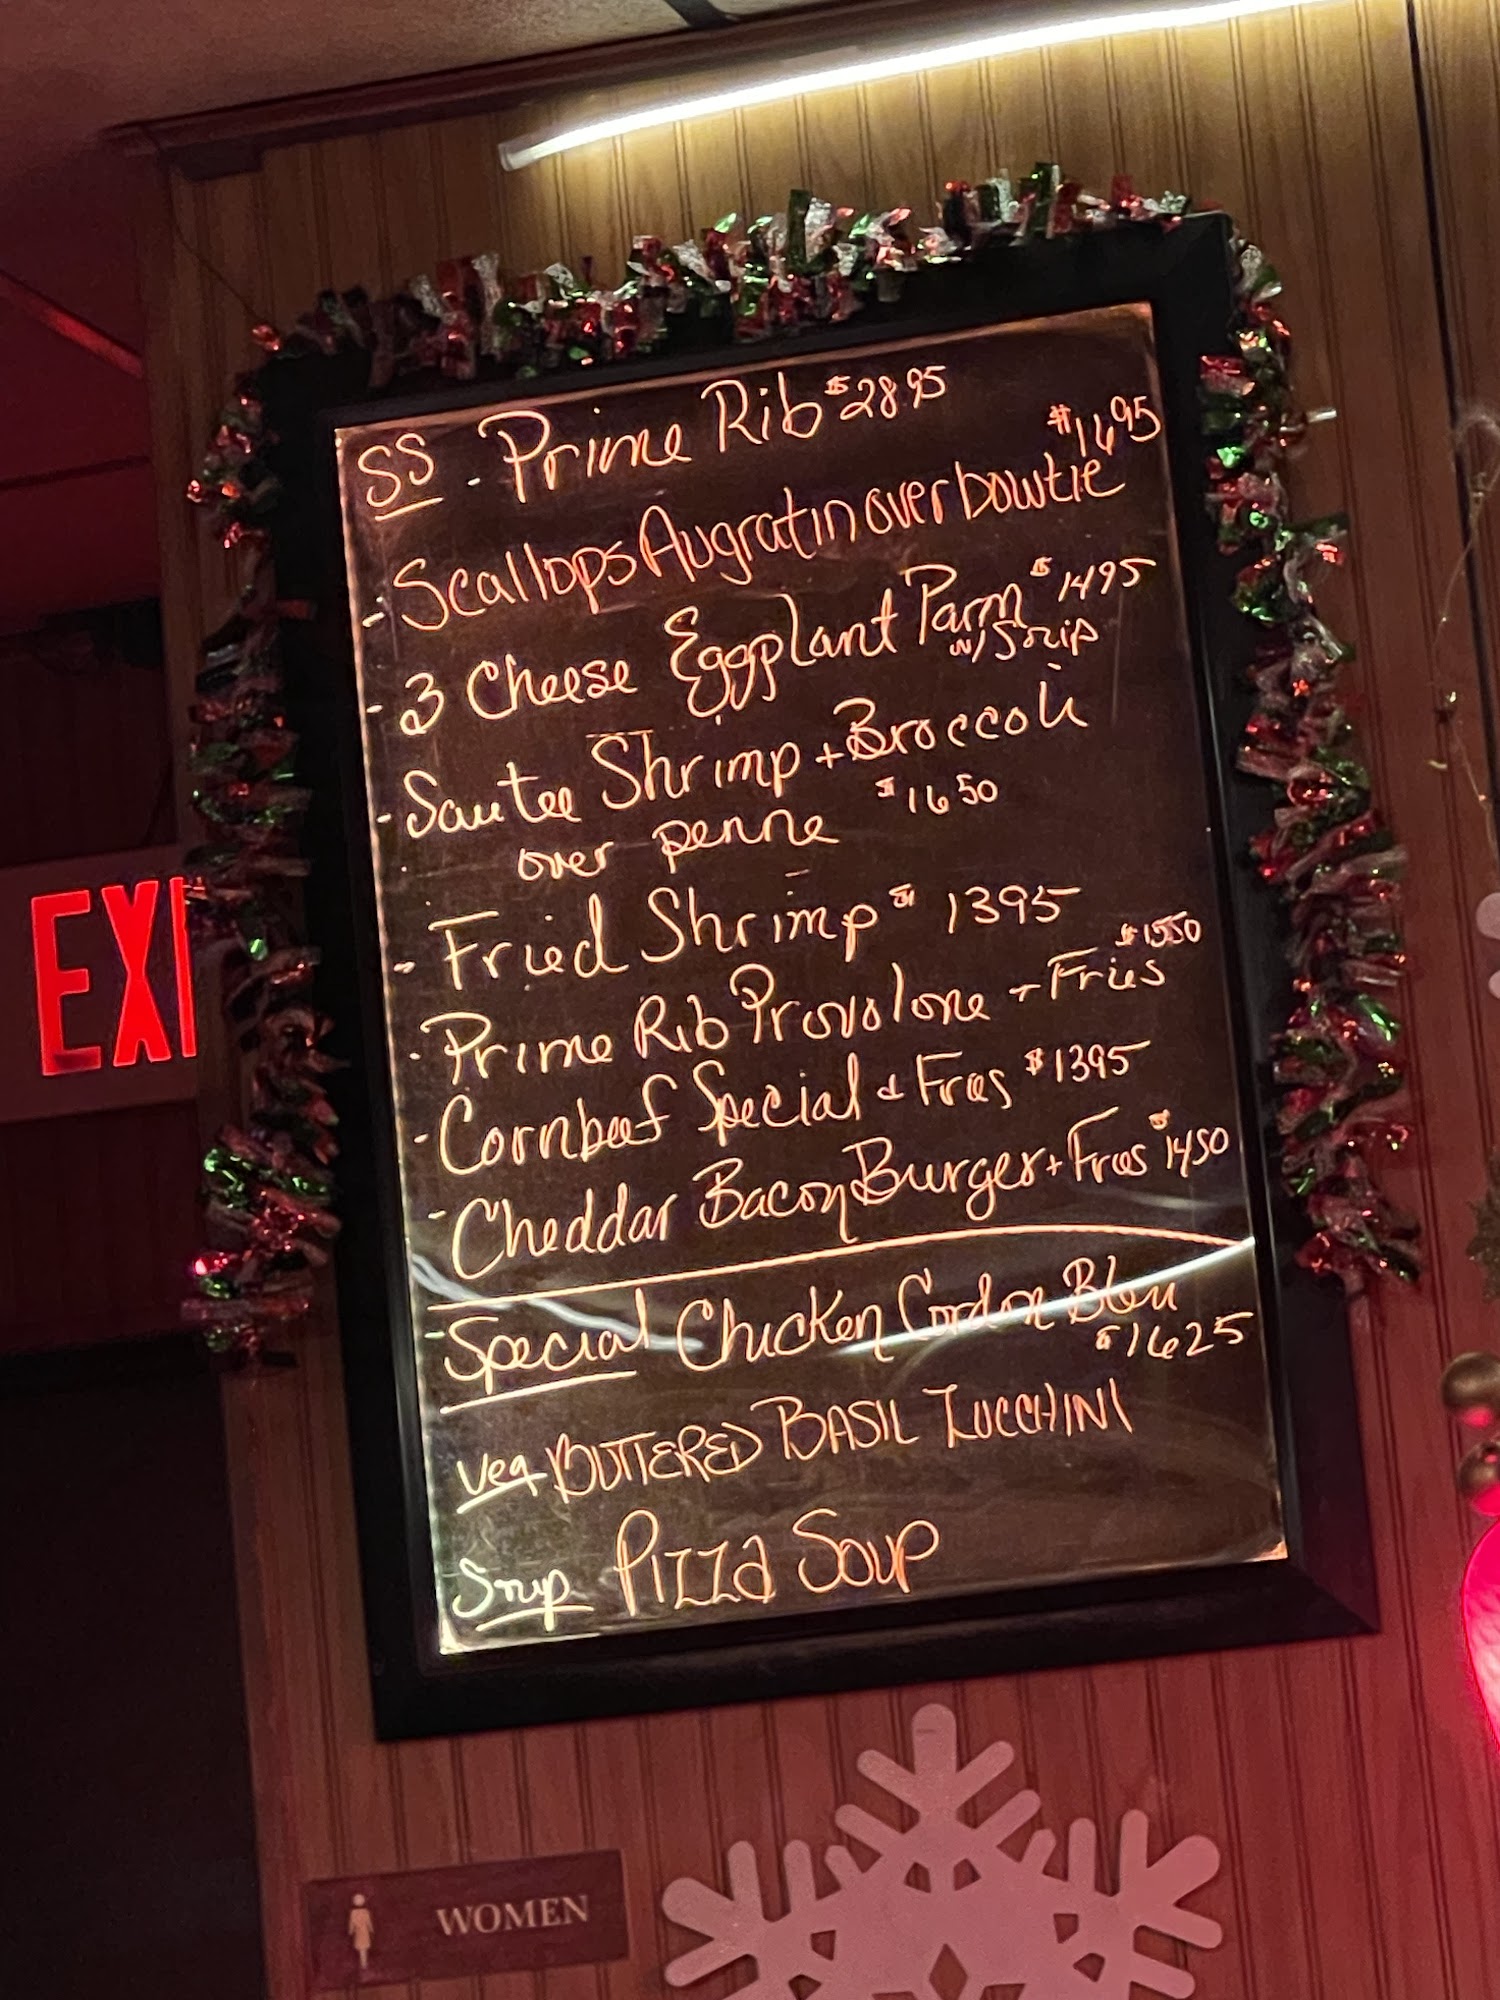 SS - Prime Rib $28.95
$16.95
- Scallops Augratin over bowtie
- 3 Cheese Eggplant Parm $14.95
w/ Soup
- Sautee Shrimp + Broccoli
over penne $16.50
- Fried Shrimp $13.95
$15.50
- Prime Rib Provolone + Fries
- Cornbeef Special & Fries $13.95
- Cheddar Bacon Burger + Fries $14.50
- Special Chicken Cordon Bleu
$16.25
Veg BUTTERED BASIL ZUCCHINI
Soup PIZZA SOUP
EXI
WOMEN